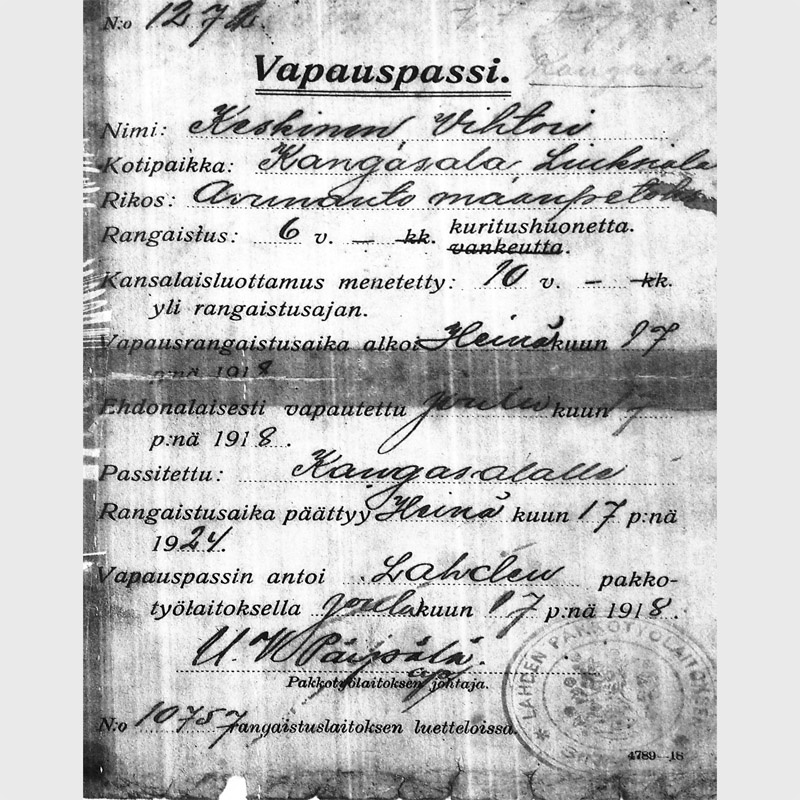 N:o 127
Kangasala
Vapauspassi.
Nimi: Keskinen Vihtori
Kotipaikka: Kangasala Liuksiala
Rikos: Avunanto maanpetoks
Rangaistus: 6 v. — kk. kuritushuonetta.
vankeutta.
Kansalaisluottamus menetetty: 10 v. — kk.
yli rangaistusajan.
Vapausrangaistusaika alkoi Heinäkuun 17
p:nä 1918
Ehdonalaisesti vapautettu joulukuun 17
p:nä 1918.
Passitettu: Kangasalalle
Rangaistusaika päättyy Heinä kuun 17 p:nä
1924.
Vapauspassin antoi Lahden pakko-
työlaitoksella joulukuun 17 p:nä 1918.
Pakkotyölaitoksen johtaja.
N:o 10757 rangaistuslaitoksen luetteloissa.
LAHDEN PAKKOTYÖLAITOKSEN
4789—18